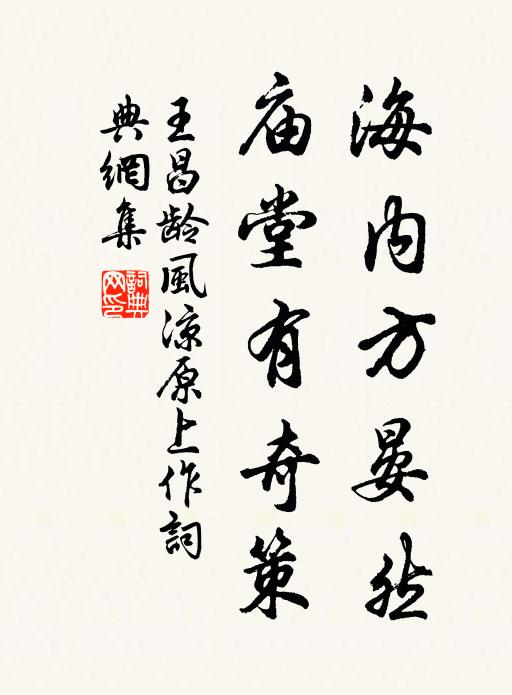 海内方晏然
庙堂有奇策
王昌龄風凉原上作詞
典網集
詞典
网印